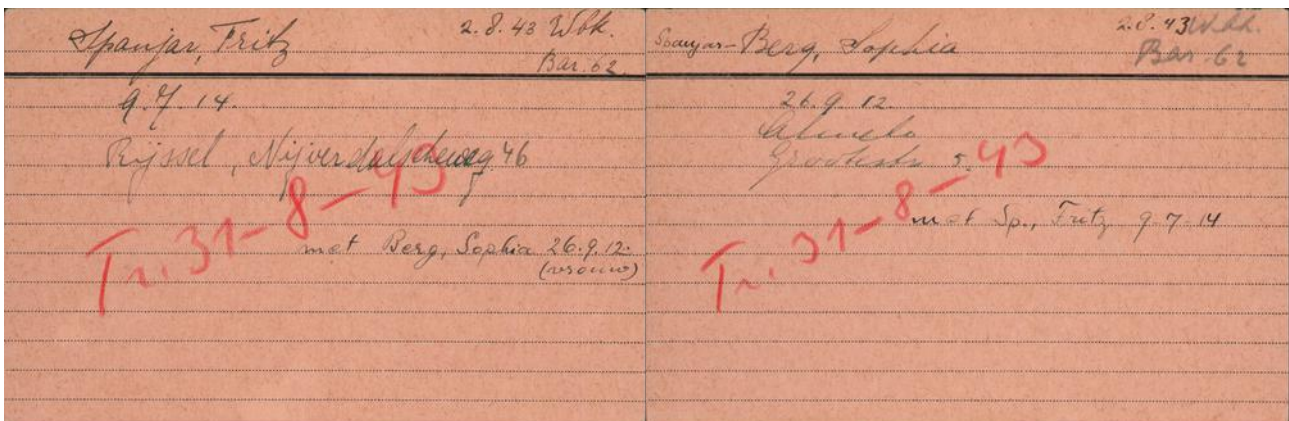 Spanjar, Fritz
2.8.43 Wbk.
Bar. 62
9.7.14.
Rijssel, Nijverdalscheweg 46
Tr. 31-8-43
met Berg, Sophia 26.9.12.
(vrouw)
Spanjar-Berg, Sophia
2.8.43 Wbk.
Bar. 62
26.9.12.
Almelo
Grootestr 5
Tr. 31-8-43
met Sp., Fritz 9-7-14